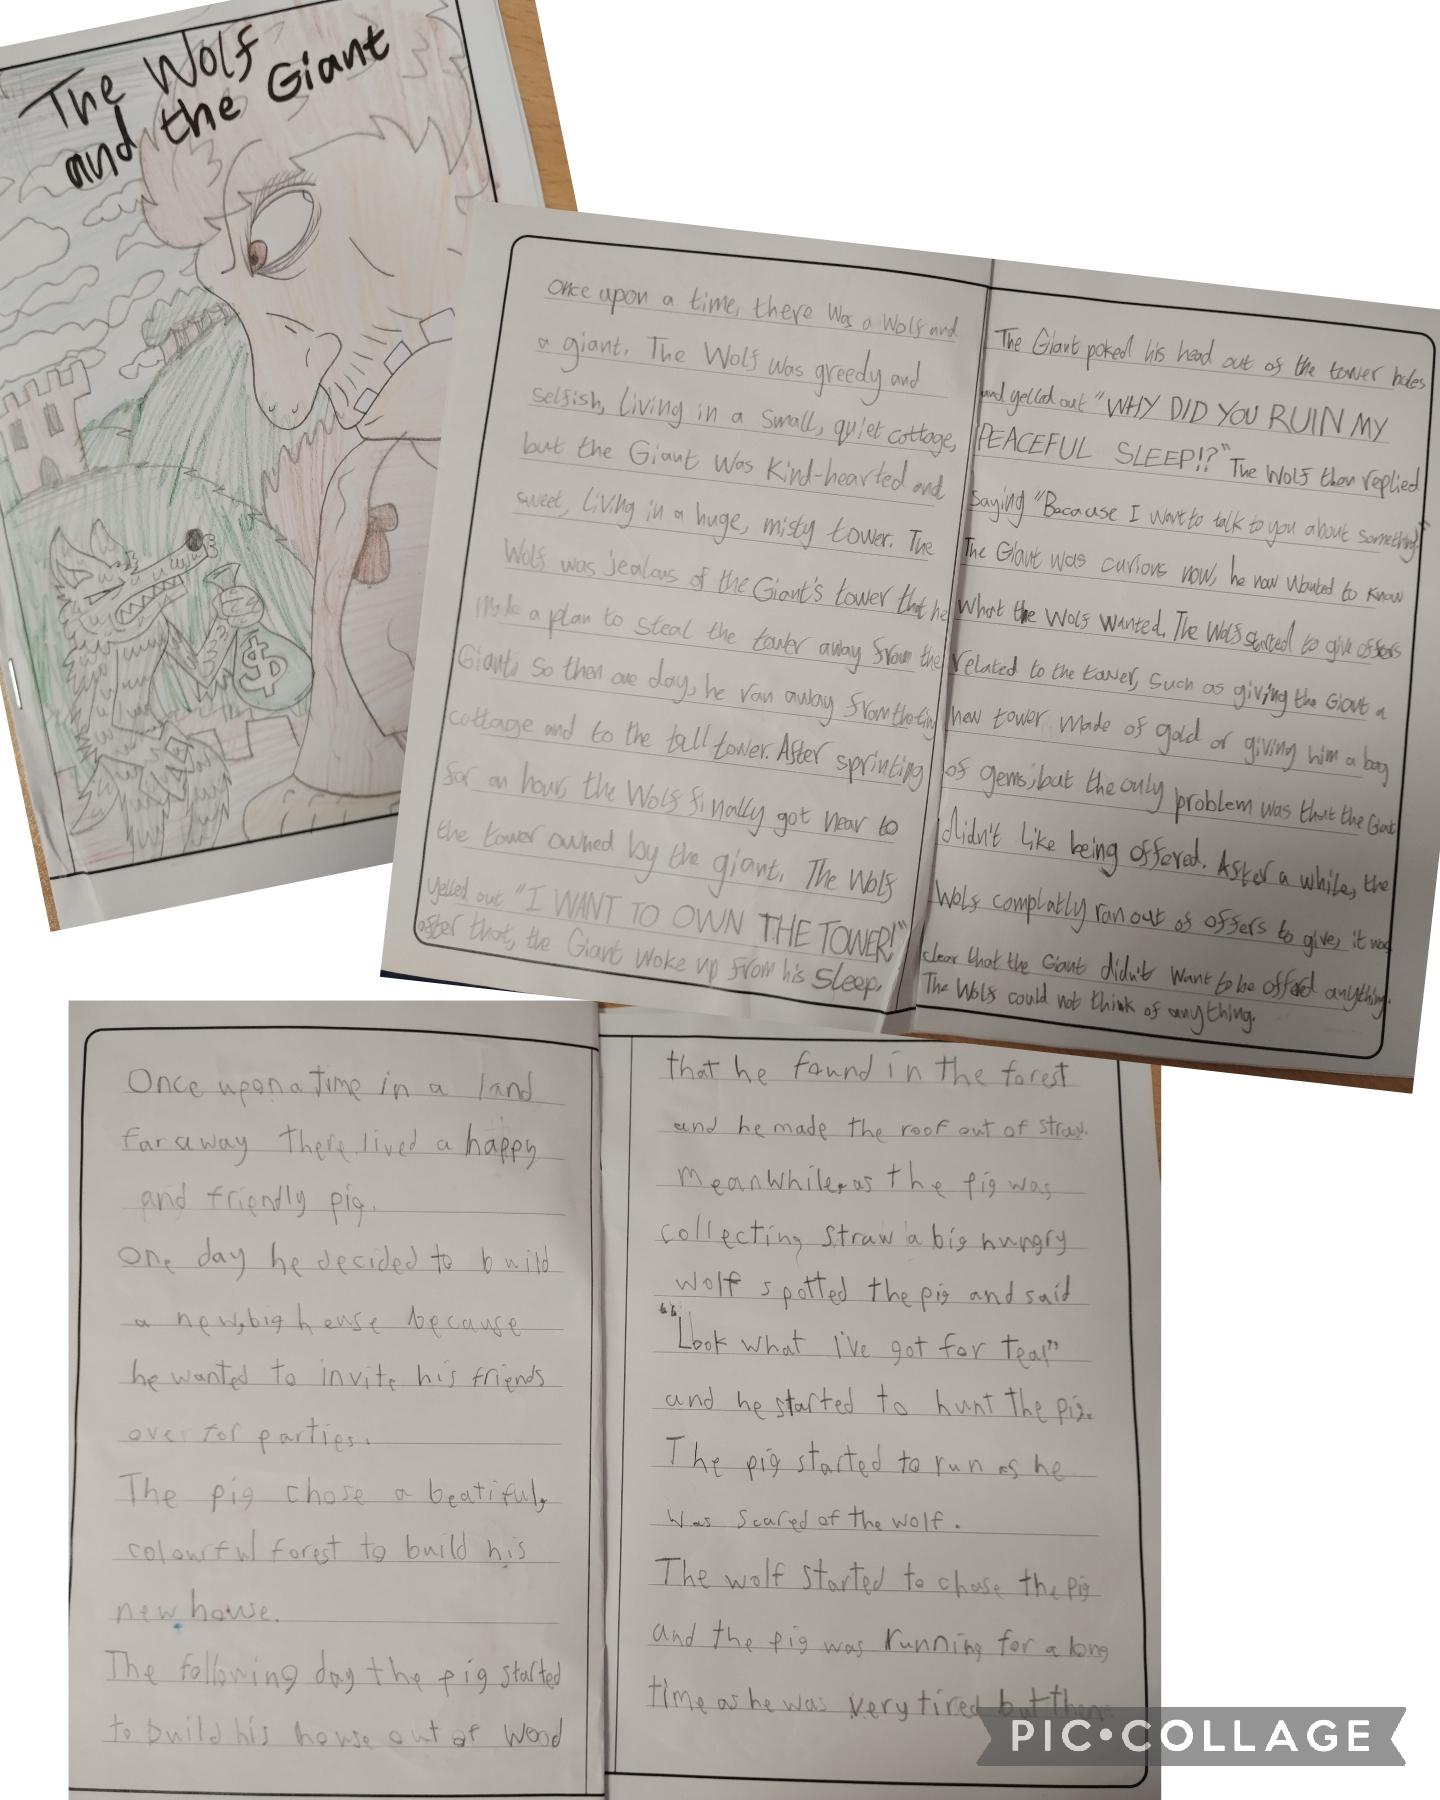 The Wolf
and the Giant
$
Once upon a time, there was a Wolf and
a giant. The Wolf was greedy and
selfish, living in a small, quiet cottage,
but the Giant was Kind-hearted and
sweet, living in a huge, misty tower. The
Wolf was jealous of the Giant's tower that he
made a plan to steal the tower away from the
Giant, so then one day, he ran away from the tiny
cottage and to the tall tower. After sprinting
for an hour, the Wolf finally got near to
the tower owned by the giant. The Wolf
yelled out "I WANT TO OWN THE TOWER!"
after that, the Giant woke up from his sleep.
The Giant poked his head out of the tower holes
and yelled out "WHY DID YOU RUIN MY
PEACEFUL SLEEP!?" The Wolf then replied
saying "Because I want to talk to you about something"
The Giant was curious now, he now wanted to know
what the Wolf wanted. The Wolf started to give offers
related to the tower, such as giving the Giant a
new tower made of gold or giving him a bag
of gems, but the only problem was that the Giant
didn't like being offered. After a while, the
Wolf complatly ran out of offers to give, it was
clear that the Giant didn't want to be offered anything.
The Wolf could not think of anything.
Once upon a time in a land
far away there lived a happy
and friendly pig.
One day he decided to build
a new, big house because
he wanted to invite his friends
over for parties.
The pig chose a beatiful,
colourful forest to build his
new house.
The following day the pig started
to build his house out of wood
that he found in the forest
and he made the roof out of straw.
Meanwhile, as the pig was
collecting straw a big hungry
wolf spotted the pig and said
"Look what I've got for tea!"
and he started to hunt the pig.
The pig started to run as he
was scared of the wolf.
The wolf started to chase the pig
and the pig was running for a long
time as he was very tired but then
PIC•COLLAGE